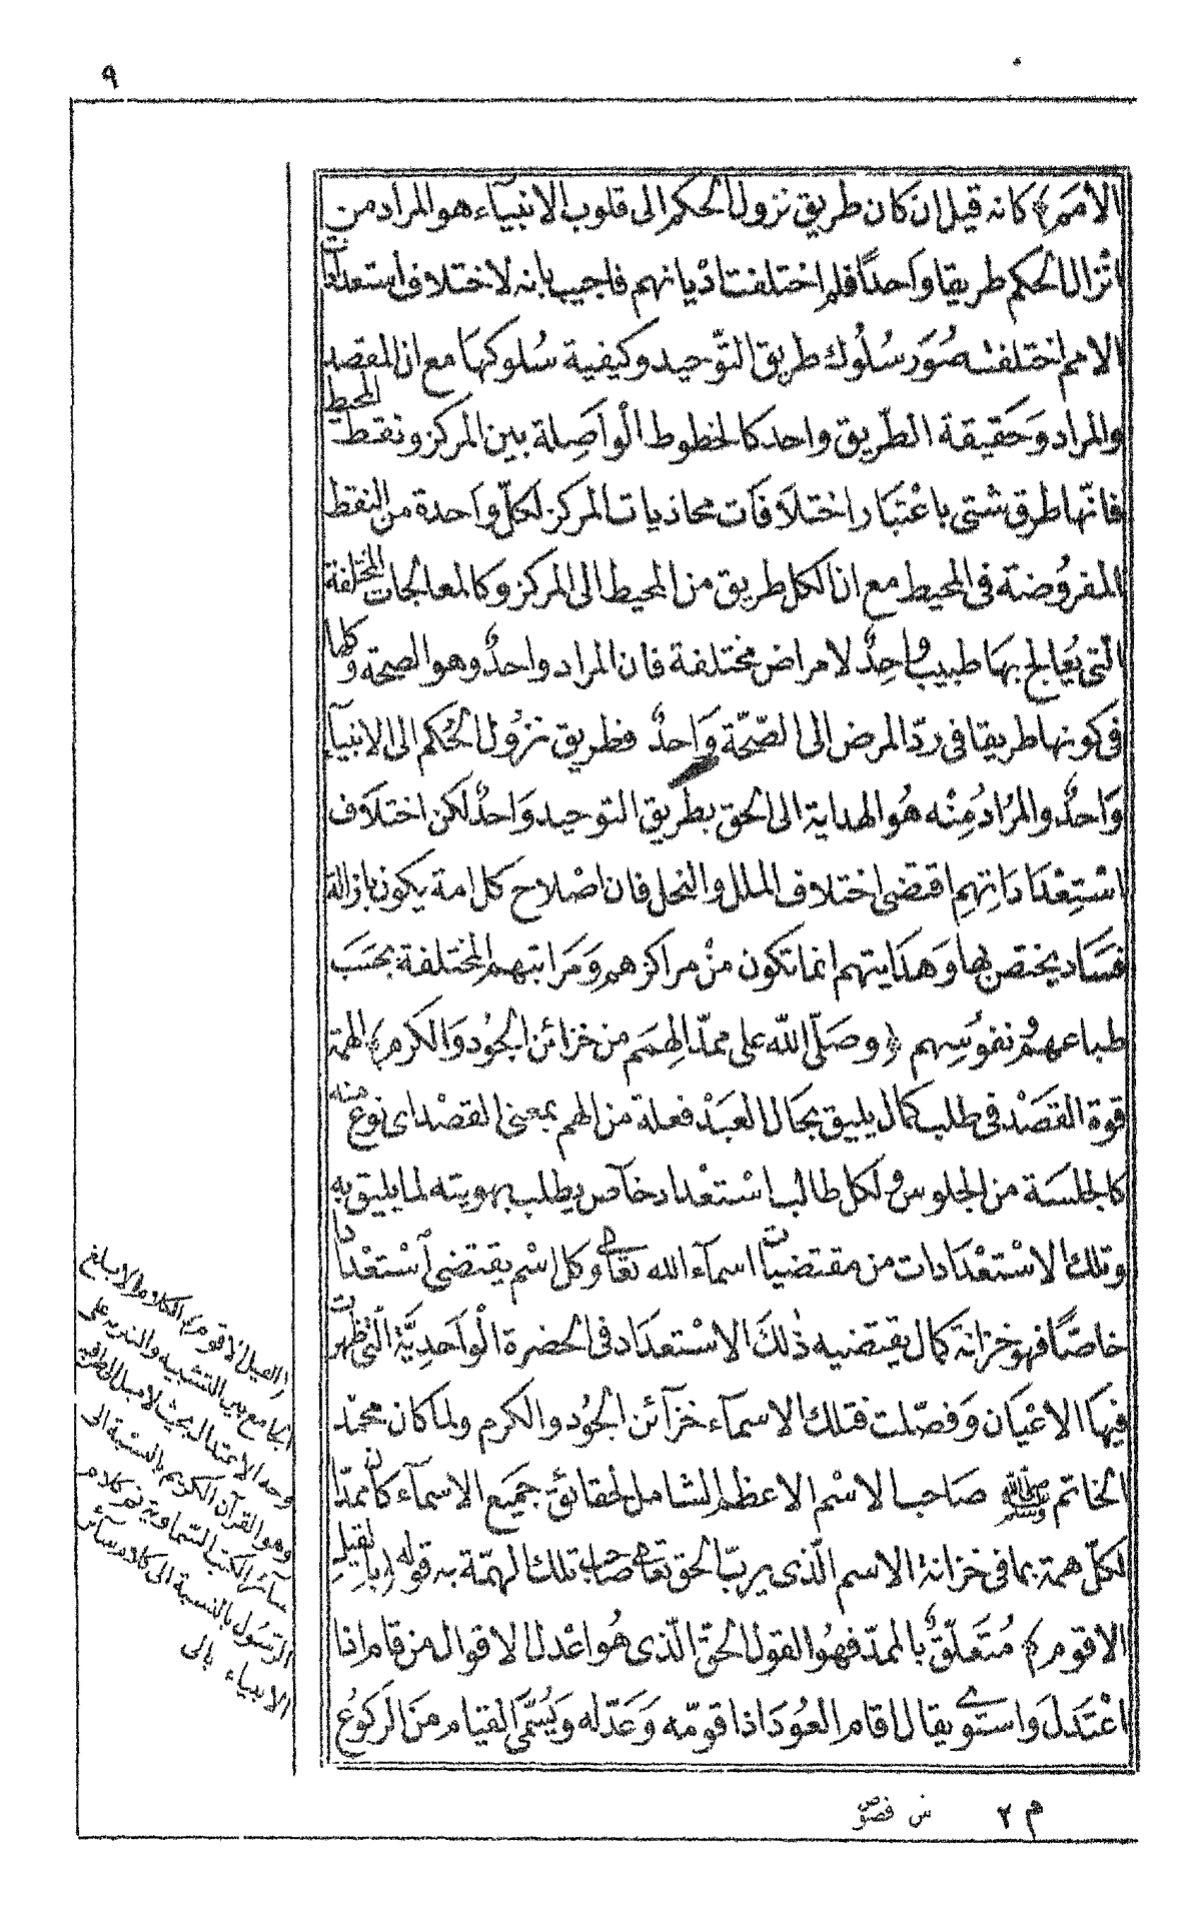 ٩
الأمَم﴾ كانه قيل ان كان طريق نزول الحكم الى قلوب الانبيآء هو المراد من
انْزال الحكم طريقا واَحداً فلم اختلفت اديانهم فاجيب بانه لاختلاف استعدادات
الامم اختلفت صُوَر سُلُوك طريق التّوحيد وكيفية سُلوكهَا مع ان المقصد
والمراد وَحَقيقة الطّريق واحد كالخطوط الْوَاصِلة بين المركز ونقط المحيط
فانّها طرق شتى باعْتبَار اختلَافَات محاذيات المركز لكلّ واَحدة من النقط
المفروُضة فى المحيط مع ان الكل طريق من المحيط الى المركز وكالمعالجات المختلفة
التى يُعالج بهَا طبيب وُاحِدٌ لامراض مختلفة فان المراد واحدٌ وهو الصحة وكلها
فى كونها طريقا فى ردّ المرض الى الصّحّة وَاحدٌ فطريق نزُول الحُكم الى الانبيآء
وَاحدٌ والمرُادُ مِنْه هُو الهداية الى الحق بطريق التوحيد وَاحدٌ لكن اختلَاف
اسْتِعْدَادَاتِهِم اقتضى اختلاف الملل والنحل فان اصْلاح كل امة يكون بازالة
فسَاد يختص بها وَهدَايتهم انما تكون منْ مراكزهم وَمَراتبهم المختلفة بحَسَب
طباعهم ونفوُسِهم ﴿وصَلّى اللّه على ممدّ الهِمَم من خزائن الجُود وَالكرم﴾ الهمة
قوة القصَدْ فى طلب كمال يليق بحال العبَدْ فعلة من الهم بمعنى القصْد اى نوع منه
كالجلسَة من الجلوس ولكل طالب اسْتعْداد خآص يطلب بهويته لما يليق به
وتلك الاسْتعْدَادات من مقتضيات اسمآء الله تعالى وكل اسْم يقتضى اسْتعْدادا
خاصّاً فهو خزانة كمال يقتضيه ذٰلكَ الاسْتعدَاد فى الحضرة الْوَاحَدِيَّة الّتى تظهر
فيهَا الاعْيَان وَفصّلت فتلك الاسمآء خزآئن الجُود والكرم ولما كان محمّد
الخاتم ﷺ صَاحب الاسْم الاعظم الشامل لحقائق جميَع الاسمآء كان ممدّا
لكلّ همة بما فى خزانة الاسم الّذى يربّ الحق تعالى صاحب تلك الهمّة به قوله ﴿بالقيل
الاقوم﴾ مُتَعَلّقٌ بالممدّ فهوُ القول الحقّ الّذى هُو اعْدل الاقوال من قام اذا
اعْتَدَلَ واستَوى يقال اقام العوُدَ اذا قوّمه وَعَدّله وَيُسَمّى القيام منَ الركوُع
(القيل الاقوم) الكلام الابلغ
الجامع بين التشبيه والتنزيه على
وجه الاعتدال بحيث لا ميل الى طرف
وهو القرآن الكريم بالنسبة الى
سآئر الكتب السّماوية ثم كلام
الرّسُول بالنسبة الى كلام سآئر
الانبياء بالى
م ٢ ش فصوص